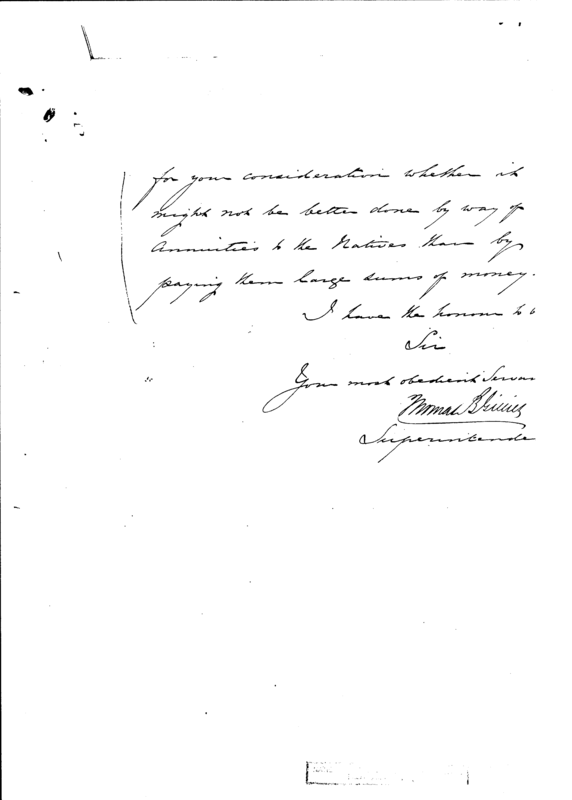 for your consideration whether it
might not be better done by way of
Annuities to the Natives than by
paying them large sums of money.
I have the honour to
Sir
Your most obedient Servan
Thomas B Gillies
Superintende